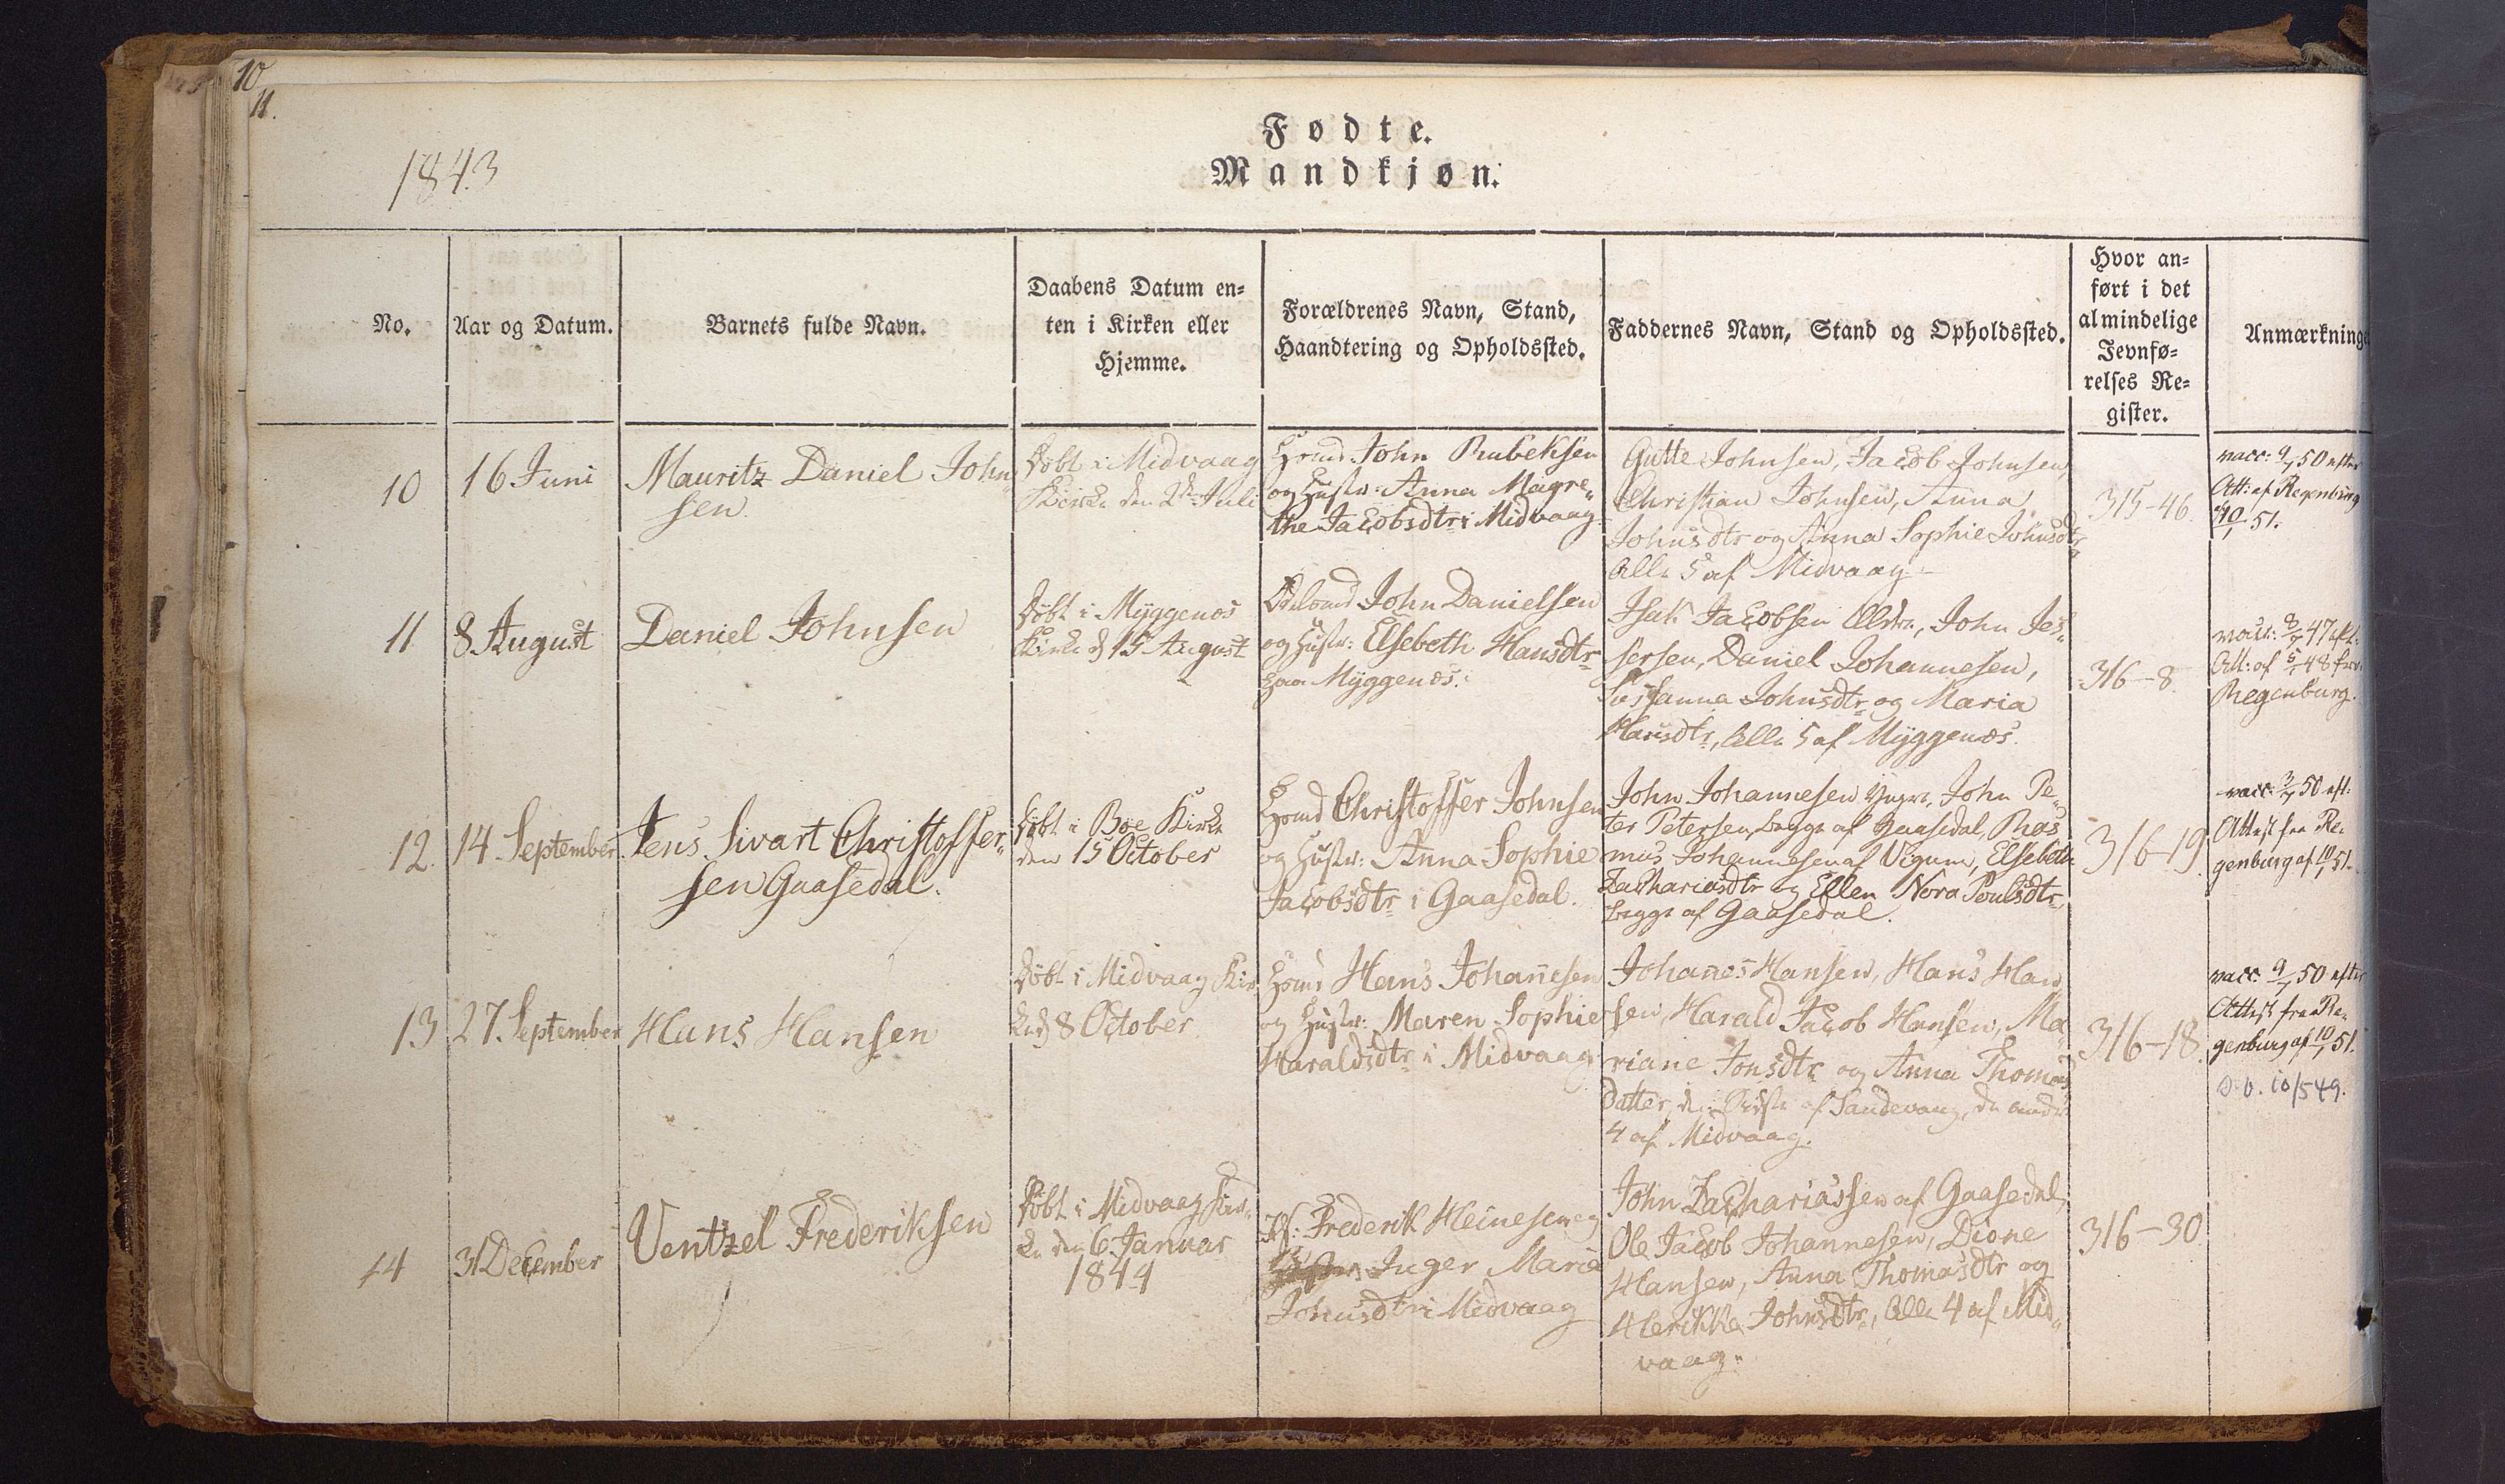 10
11.
1843
Fødte.
Mandkjøn.
No.
Aar og Datum.
Barnets fulde Navn.
Daabens Datum en=
ten i Kirken eller
Hjemme.
Forældrenes Navn, Stand,
Haandtering og Opholdssted.
Faddernes Navn, Stand og Opholdssted.
Hvor an=
ført i det
almindelige
Jevnfø=
relses Re=
gister.
Anmærkninge
10
16 Juni
Mauritz Daniel John„
sen
døbt i Midvaag
Kirke den 2de Juli
John Rubeksen
og Hustr: Anna Magre„
the Jacobsdtr i Midvaag.
Gutte Johnsen, Jacob Johnsen,
Christian Johnsen, Anna
Johnsdtr og Anna Sophie Johnsdtr
Alle 5 af Midvaag.
315-46.
vacc: 9/7 50 efter
Att: af Regenburg
10/1 51.
11
8 August
Daniel Johnsen
døbt i Myggenæs
Kirke d 15 August
John Danielsen
og Hustr: Elsebeth Hansdtr
paa Myggenæs.
Isak Jacobsen Ældre, John Jes„
persen, Daniel Johannesen,
Susanna Johnsdtr og Maria
Hansdtr, Alle 5 af Myggenæs.
316-8.
vacc: 8/7 47 eft:
Att: af 5/1 48 fra
Regenburg.
12.
14 September
Jens Sivart Christoffer„
sen Gaasedal.
døbt i Bøe Kirke
den 15 October
Christoffer Johnsen
og Hustr: Anna Sophie
Jacobsdtr i Gaasedal.
John Johannesen Yngre, John Pe„
ter Petersen, begge af Gaasedal, Ras
mus Johannesen af Vigum, Elsebeth
Zachariasdtr og Ellen Nora Poulsdtr
begge af Gaasedal.
316-19.
vacc: 3/7 50 eft:
Attest fra Re„
genburg af 10/1 51.
13
27. September
Hans Hansen
døbt i Midvaag Kir„
ke d 8 October
Hans Johanesen
og Hustr: Maren Sophie
Haraldsdtr i Midvaag
Johanes Hansen, Hans Han
sen, Harald Jacob Hansen, Ma
riane Jonsdtr og Anna Thomas
datter, af Sandevaag, de andre
4 af Midvaag.
316-18.
vacc: 9/7 50 efter
Attest fra Re„
genburg af 10/1 51.
14
31 December
Ventzel Frederiksen
døbt i Midvaag Kir„
ke den 6. Januar
1844
Frederik Heinesen og
Inger Maria
Johnsdtr i Midvaag
John Zachariassen af Gaasedal,
Ole Jacob Johannesen, Dione
Hansen, Anna Thomasdtr og
Herikka Johnsdtr, Alle 4 af Mid„
vaag.
316-30.